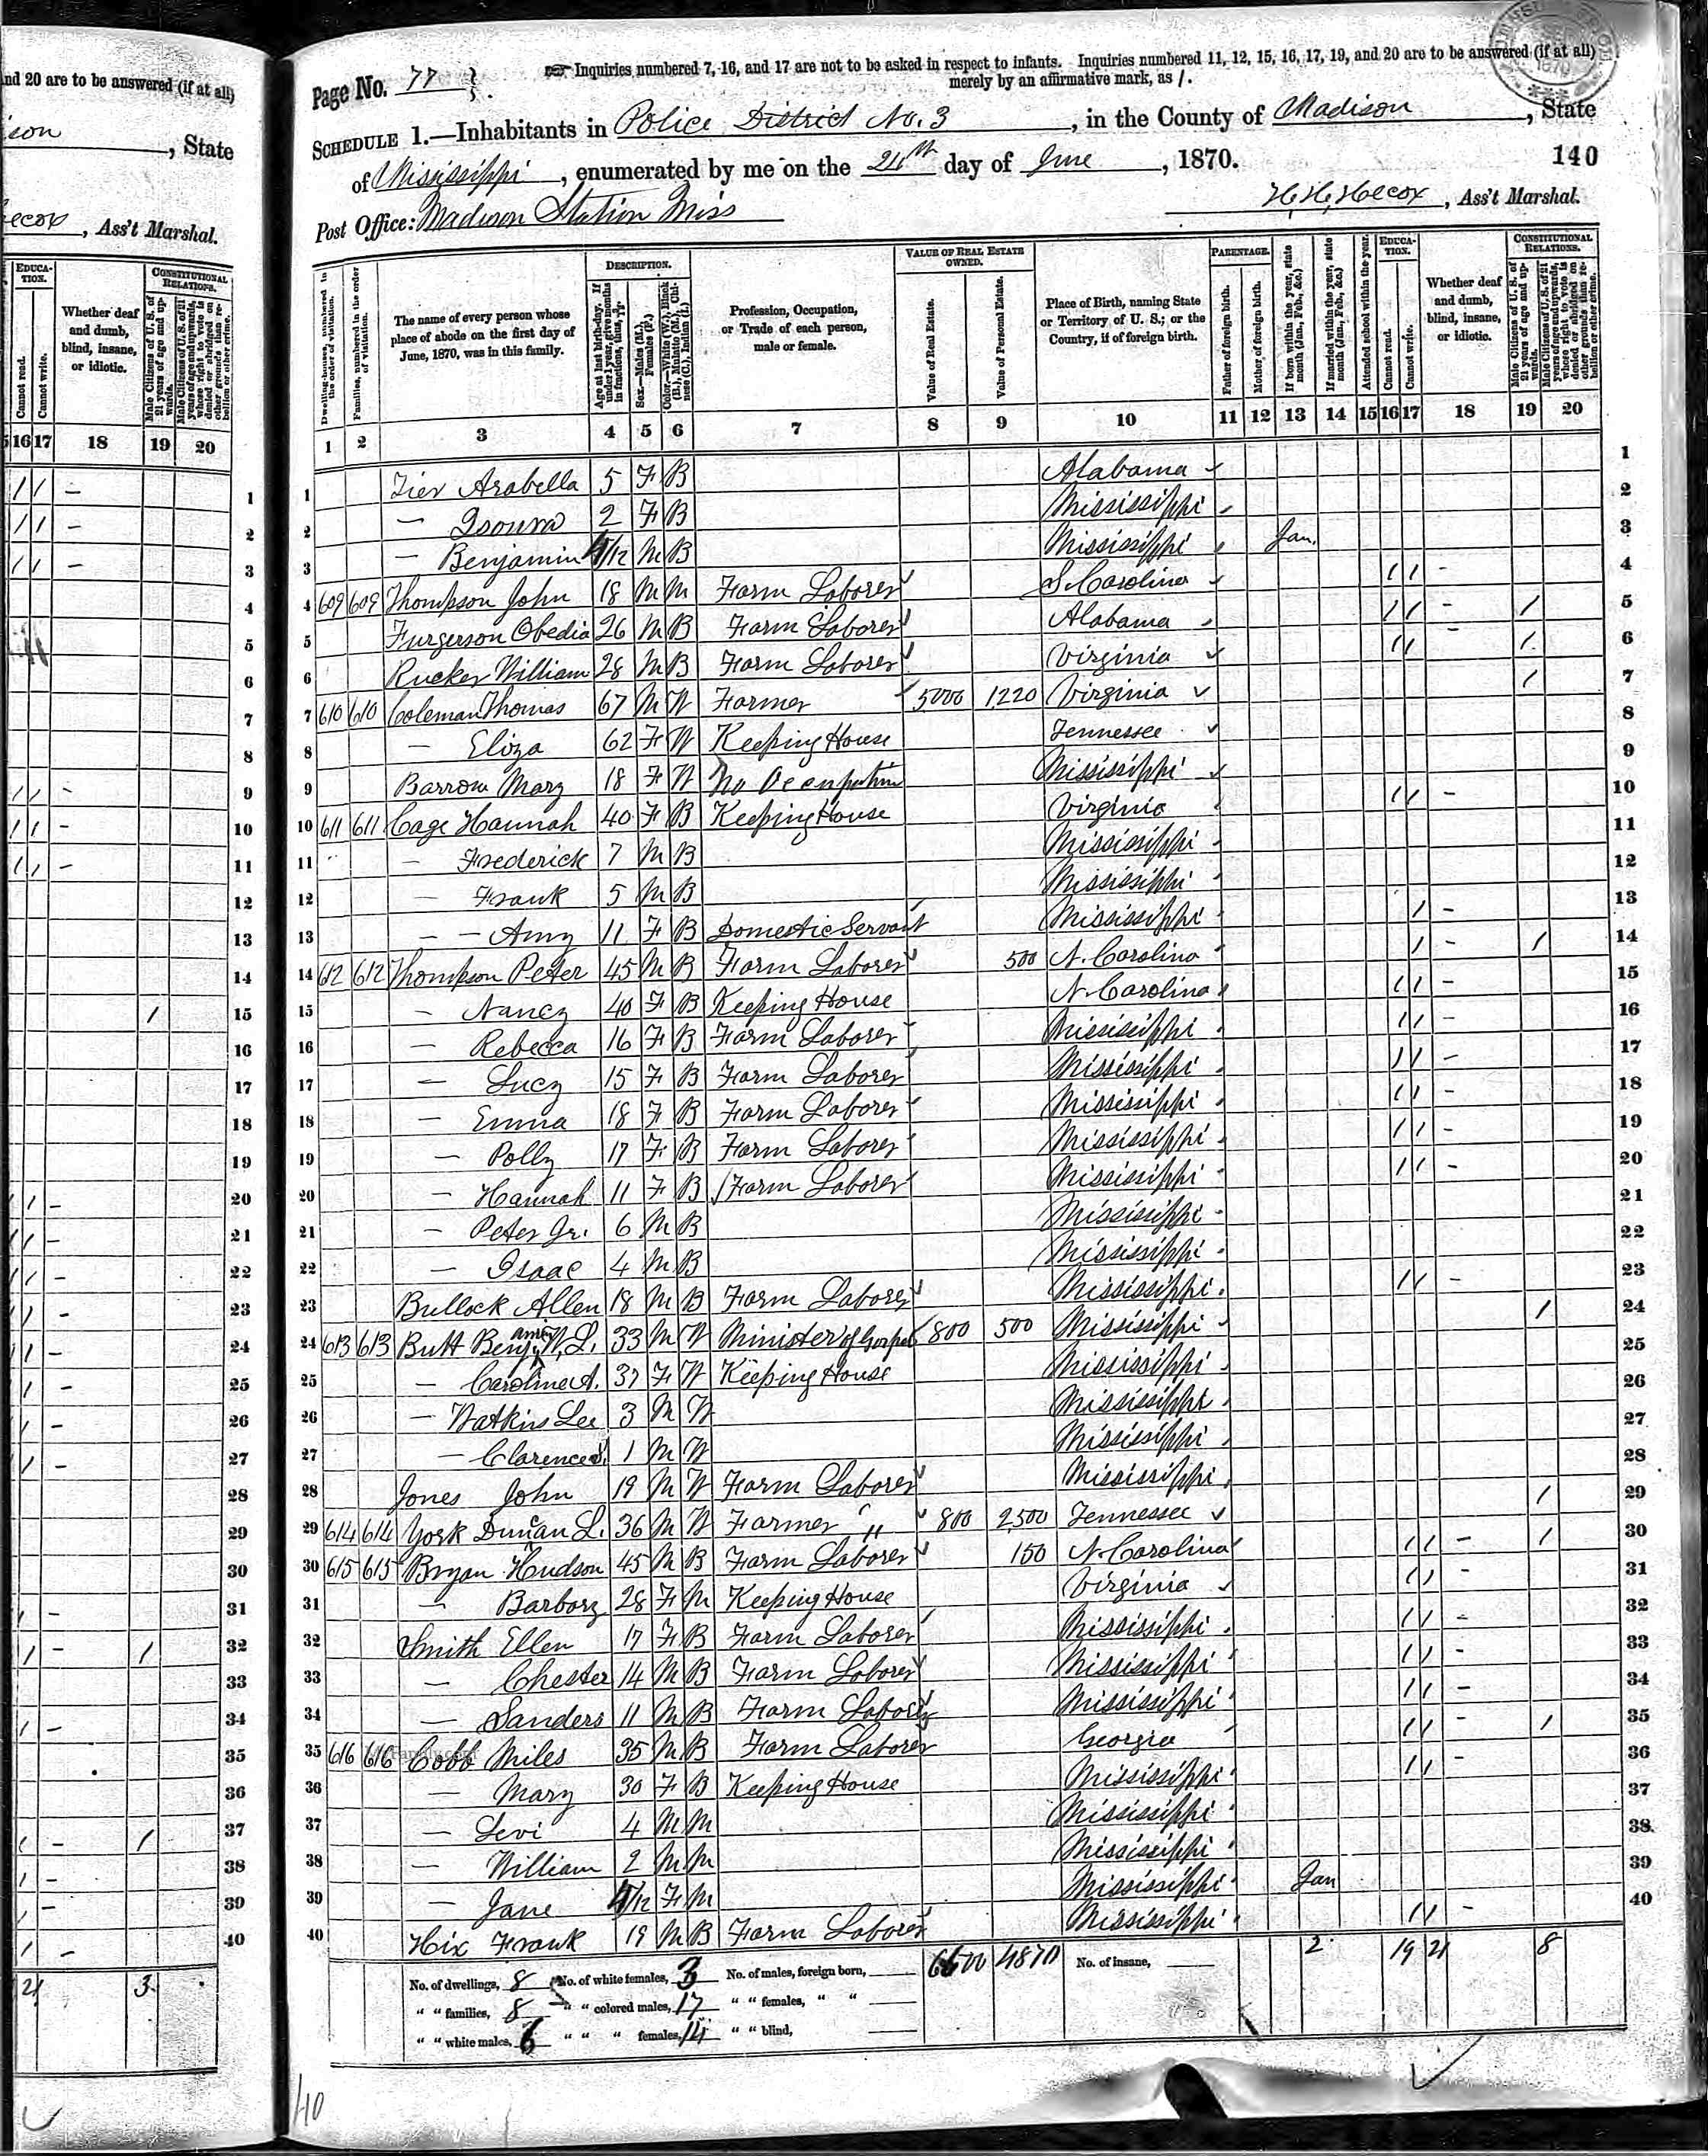 nd 20 are to be answered (if at all)
ison, State
elcox, Ass't Marshal.
Page No. 77
Inquiries numbered 7, 16, and 17 are not to be asked in respect to infants. Inquiries numbered 11, 12, 15, 16, 17, 19, and 20 are to be answered (if at all)
merely by an affirmative mark, as /.
SCHEDULE 1.—Inhabitants in Police District No. 3, in the County of Madison, State
of Mississippi, enumerated by me on the 24th day of June, 1870.
140
Post Office: Madison Station Miss
H. H. Holcox, Ass't Marshal.
Dwelling-houses, numbered in the order of visitation.
Families, numbered in the order of visitation.
The name of every person whose place of abode on the first day of June, 1870, was in this family.
DESCRIPTION.
Age at last birth-day. If under 1 year, give months in fractions, thus, 3/12
Sex.—Males (M.), Females (F.)
Color.—White (W.), Black (B.), Mulatto (M.), Chinese (C.), Indian (I.)
Profession, Occupation, or Trade of each person, male or female.
VALUE OF REAL ESTATE OWNED.
Value of Real Estate.
Value of Personal Estate.
Place of Birth, naming State or Territory of U. S.; or the Country, if of foreign birth.
PARENTAGE.
Father of foreign birth.
Mother of foreign birth.
If born within the year, state month (Jan., Feb., &c.)
If married within the year, state month (Jan., Feb., &c.)
Attended school within the year.
EDUCATION.
Cannot read.
Cannot write.
Whether deaf and dumb, blind, insane, or idiotic.
CONSTITUTIONAL RELATIONS.
Male Citizens of U. S. of 21 years of age and upwards.
Male Citizens of U. S. of 21 years of age and upwards, whose right to vote is denied or abridged on other grounds than rebellion or other crime.
1 2 3 4 5 6 7 8 9 10 11 12 13 14 15 16 17 18 19 20
1 Tier Arabella 5 F B Alabama
2 — 2 F B Mississippi
3 — Benjamin 4/12 M B Mississippi Jan.
4 609 609 Thompson John 18 M M Farm Laborer S. Carolina / / -
5 Furgerson Obedia 26 M B Farm Laborer Alabama / / - /
6 Rucker William 28 M B Farm Laborer Virginia / / - /
7 610 610 Coleman Thomas 67 M W Farmer 5000 1220 Virginia /
8 — Eliza 62 F W Keeping House Tennessee
9 Barrow Mary 18 F W No Occupation Mississippi
10 611 611 Cage Hannah 40 F B Keeping House Virginia / / -
11 — Frederick 7 M B Mississippi
12 — Frank 5 M B Mississippi
13 — — Amy 11 F B Domestic Servant Mississippi / -
14 612 612 Thompson Peter 45 M B Farm Laborer 500 N. Carolina / - /
15 — Nancy 40 F B Keeping House N. Carolina / / -
16 — Rebecca 16 F B Farm Laborer Mississippi / / -
17 — Lucy 15 F B Farm Laborer Mississippi / / -
18 — Emma 18 F B Farm Laborer Mississippi / / -
19 — Polly 17 F B Farm Laborer Mississippi / / -
20 — Hannah 11 F B Farm Laborer Mississippi / / -
21 — Peter Jr. 6 M B Mississippi
22 — Isaac 4 M B Mississippi
23 Bullock Allen 18 M B Farm Laborer Mississippi / / -
24 613 613 Butt Benjamin W. L. 33 M W Minister of Gospel 800 500 Mississippi /
25 — Caroline A. 37 F W Keeping House Mississippi
26 — Watkins Lee 3 M W Mississippi
27 — Clarence 1 M W Mississippi
28 Jones John 19 M W Farm Laborer Mississippi
29 614 614 York Duncan L. 36 M W Farmer " 800 2500 Tennessee /
30 615 615 Bryan Hudson 45 M B Farm Laborer 150 N. Carolina / / - /
31 — Barbory 28 F M Keeping House Virginia / /
32 Smith Ellen 17 F B Farm Laborer Mississippi / / -
33 — Chester 14 M B Farm Laborer Mississippi / / -
34 — Sanders 11 M B Farm Laborer Mississippi / / -
35 616 616 Cobb Miles 35 M B Farm Laborer Georgia / / - /
36 — Mary 30 F B Keeping House Mississippi / / -
37 — Levi 4 M M Mississippi
38 — William 2 M M Mississippi
39 — Jane 4/12 F M Mississippi Jan
40 Hix Frank 19 M B Farm Laborer Mississippi / / -
No. of dwellings, 8 No. of white females, 3 No. of males, foreign born, 6600 4870 No. of insane, 2 19 21 8
" " families, 8 " " colored males, 17 " " females, " "
" " white males, 6 " " " females, 14 " " blind,
40